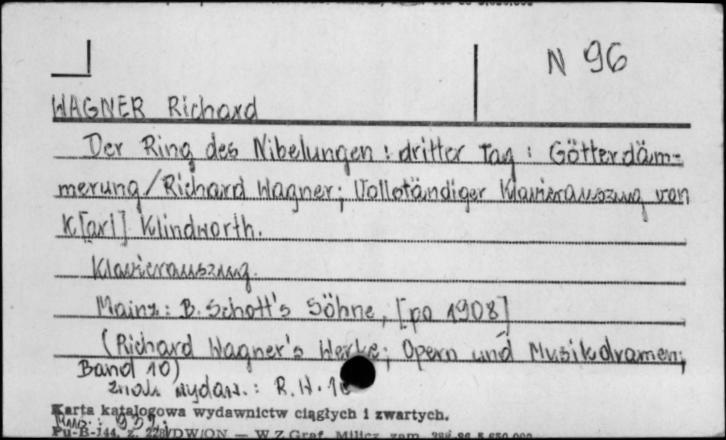 N 96
WAGNER Richard
Der Ring des Nibelungen : dritter Tag : Götterdäm-
merung / Richard Wagner ; Vollständiger Klavierauszug von
K[arl] Klindworth.
Klavierauszug.
Mainz : B. Schott's Söhne, [po 1908]
(Richard Wagner's Werke ; Opern und Musikdramen ;
Band 10)
znak wydaw. : R. W. 10
Karta katalogowa wydawnictw ciągłych i zwartych.
Pu-B-144, z. 228/DW/ON — W.Z.Graf. Milicz, zam.